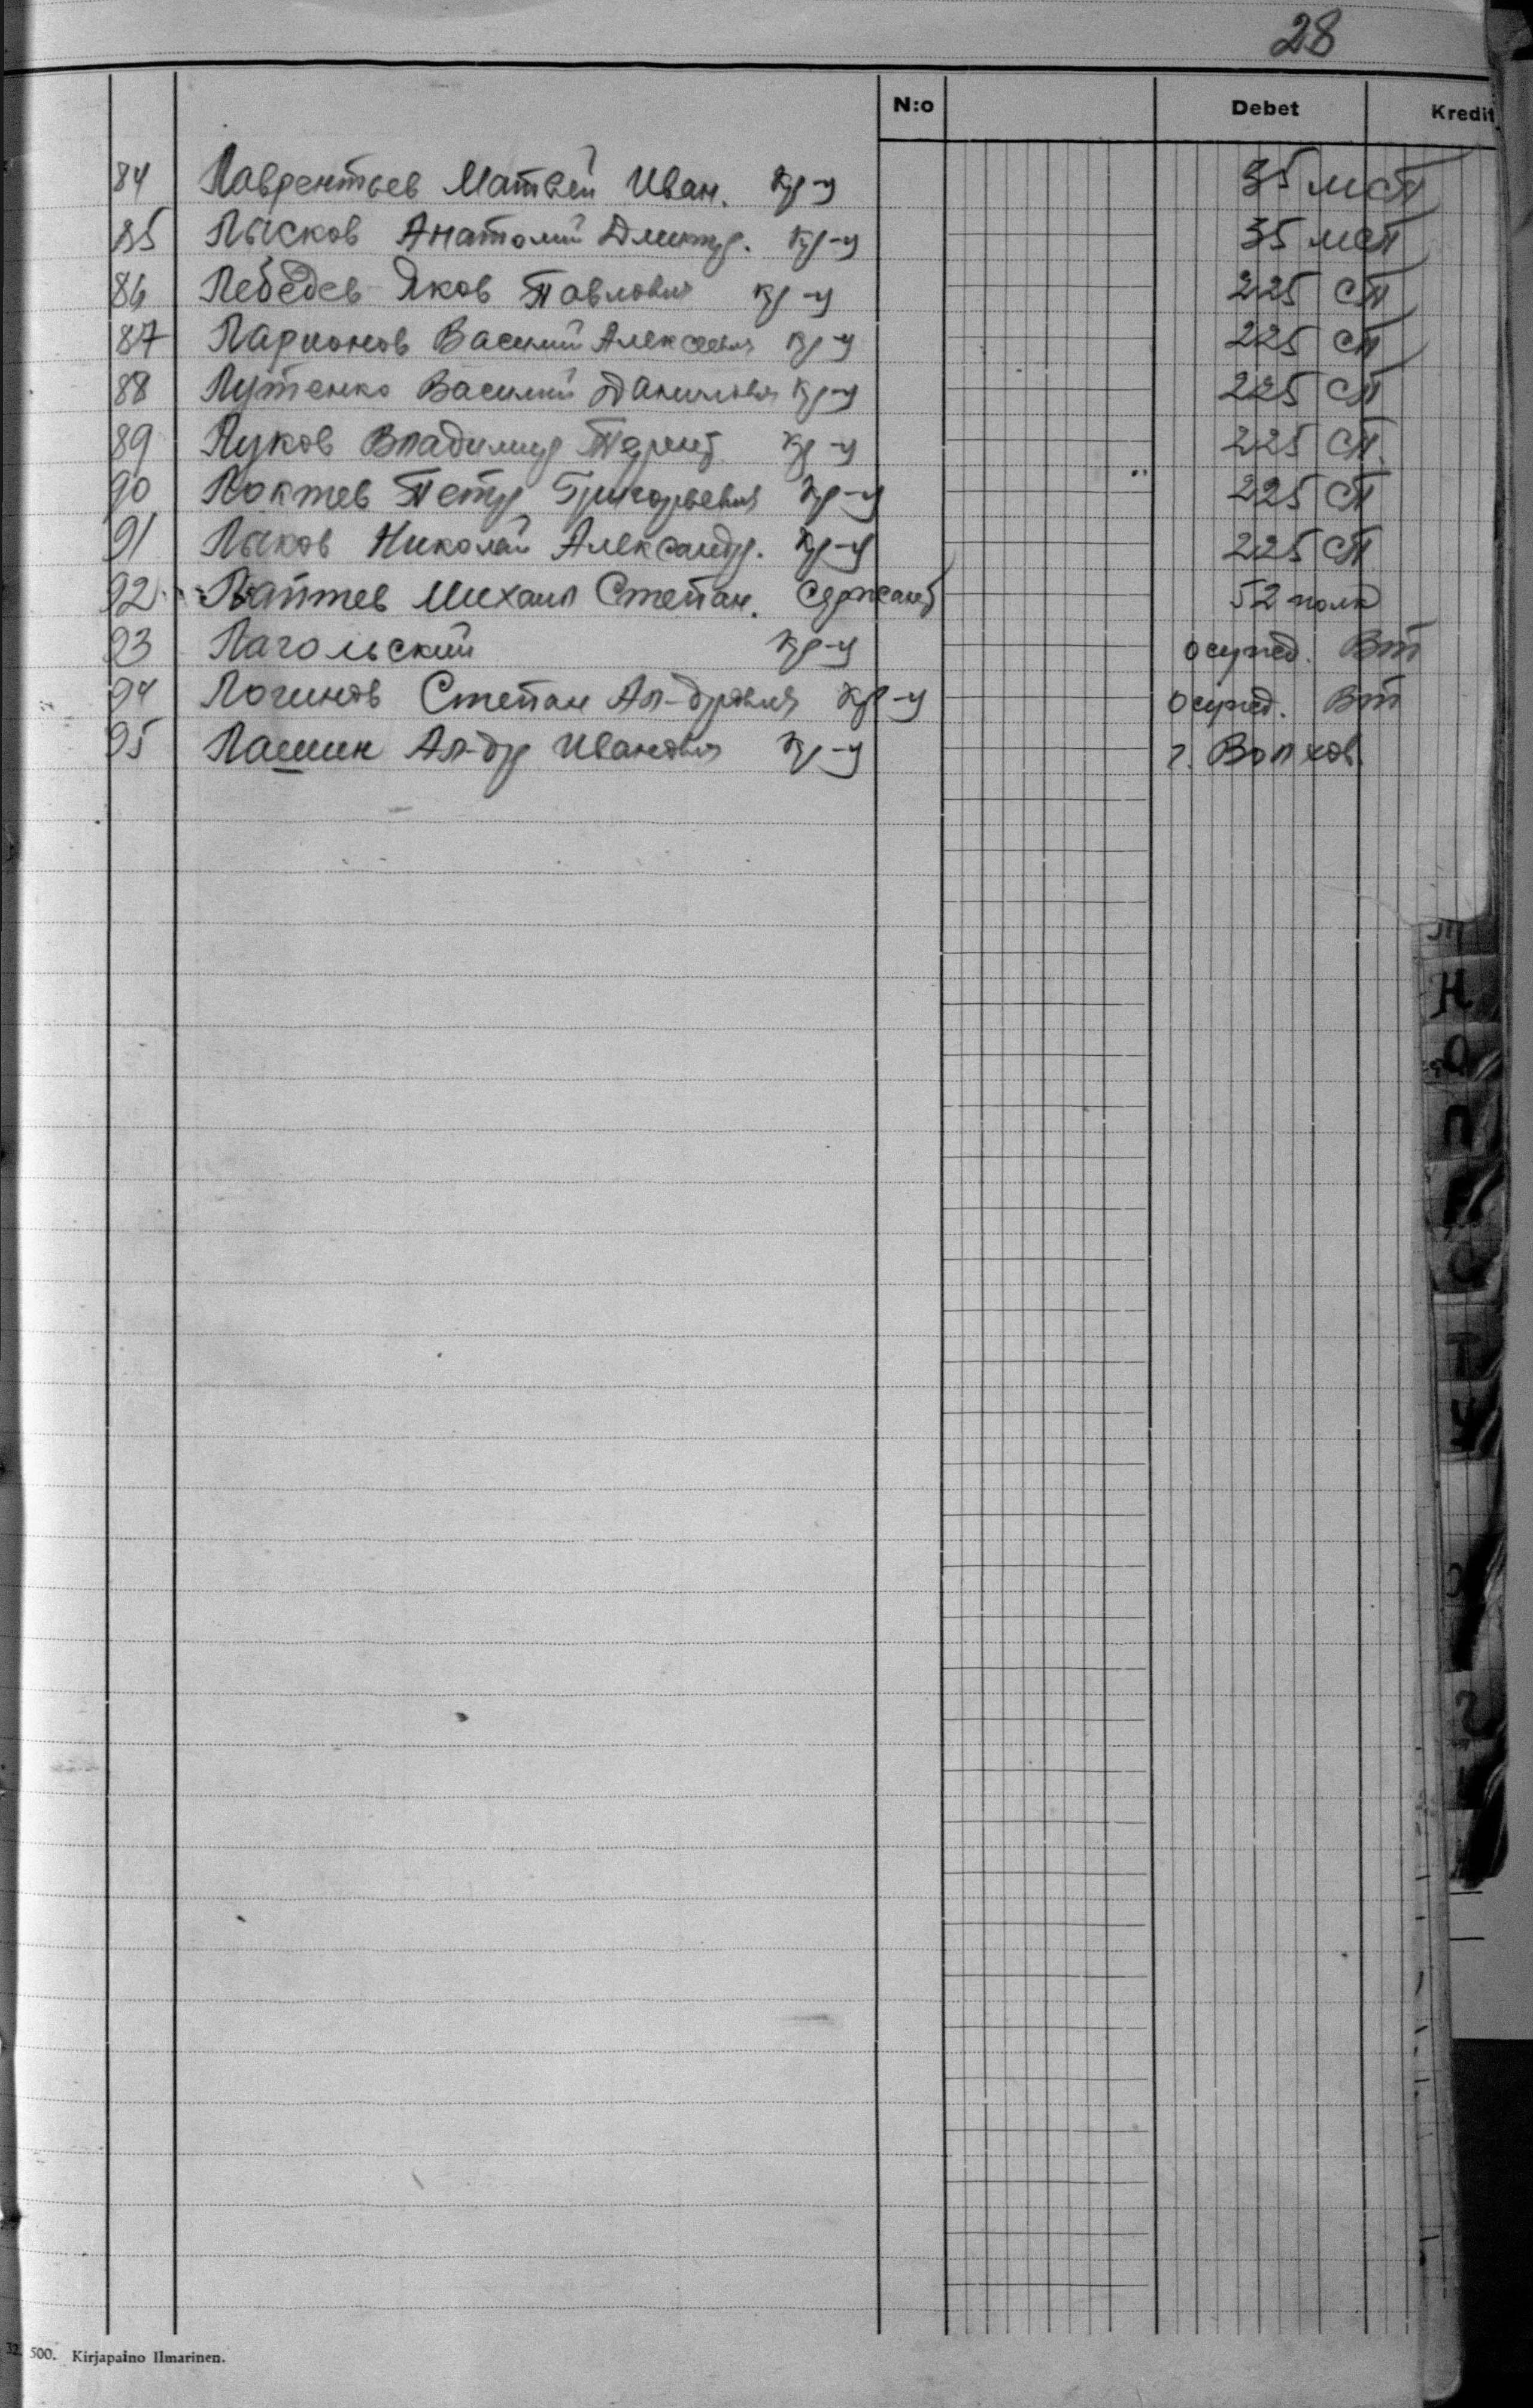 28
N:o Debet Kredit
84 Лаврентьев Матвей Иван. кр-ц 35 мсп
85 Лысков Анатолий Дмитр. кр-ц 35 мсп
86 Лебедев Яков Павлович кр-ц 225 СП
87 Ларионов Василий Алексеевич кр-ц 225 СП
88 Лутенко Василий Данилович кр-ц 225 СП
89 Луков Владимир Терент. кр-ц 225 СП.
90 Локтев Петр Григорьевич кр-ц 225 СП
91 Лыков Николай Александр. кр-ц 225 СП
92 Лаптев Михаил Степан. Сержант 52 полк
93 Лагольский кр-ц осужд. ВТ
94 Логинов Степан Ал-дрович кр-ц осужд. ВТ
95 Лашин Ал-др Иванович кр-ц г. Волхов.
Н
О
П
Р
С
Т
У
32. 500. Kirjapaino Ilmarinen.